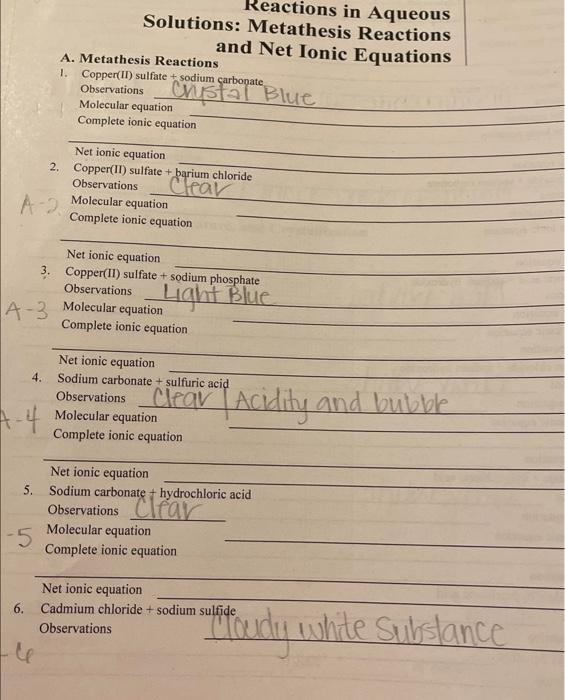 Reactions in Aqueous
Solutions: Metathesis Reactions
and Net Ionic Equations
A. Metathesis Reactions
1. Copper(II) sulfate + sodium carbonate
Observations Crystal Blue
Molecular equation
Complete ionic equation
Net ionic equation
2. Copper(II) sulfate + barium chloride
Observations Clear
A-2 Molecular equation
Complete ionic equation
Net ionic equation
3. Copper(II) sulfate + sodium phosphate
Observations Light Blue
A-3 Molecular equation
Complete ionic equation
Net ionic equation
4. Sodium carbonate + sulfuric acid
Observations Clear | Acidity and bubble
A-4 Molecular equation
Complete ionic equation
Net ionic equation
5. Sodium carbonate + hydrochloric acid
Observations Clear
-5 Molecular equation
Complete ionic equation
Net ionic equation
6. Cadmium chloride + sodium sulfide
Observations Cloudy white Substance
-6